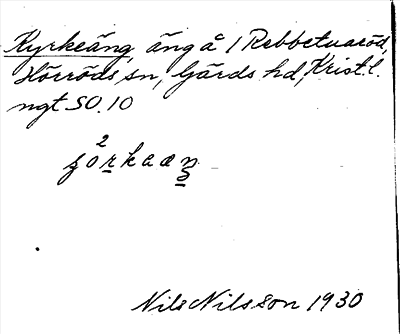 Kyrkeäng, äng å 1 Rebbetuaröd,
Hörröds sn, Gärds hd, Krist. l.
ngt SO. 10
2
Nils Nilsson 1930